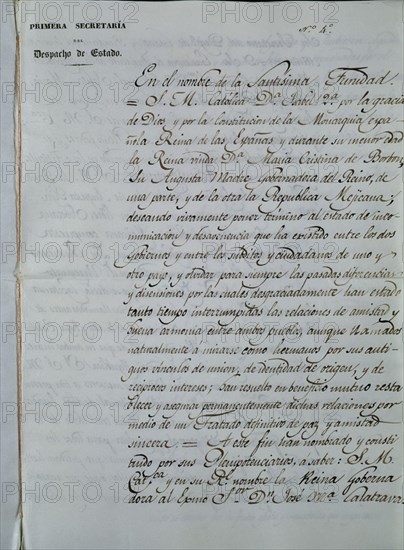 PRIMERA SECRETARÍA
DEL
Despacho de Estado.
Nº 4º
En el nombre de la Santisima Trinidad.
= S. M. Catolica Dª Isabel 2ª por la gracia
de Dios, y por la Constitucion de la Monarquia espa
ñola Reina de las Españas, y durante su menor edad
la Reina viuda Dª Maria Cristina de Borbon,
Su Augusta Madre, Gobernadora del Reino, de
una parte, y de la otra la Republica Mejicana;
deseando vivamente poner término al estado de inco-
municacion y desavenencia que ha existido entre los dos
Gobiernos y entre los subditos y ciudadanos de uno y
otro pays, y olvidar para siempre las pasadas diferencias
y disensiones por las cuales desgraciadamente han estado
tanto tiempo interrumpidas las relaciones de amistad y
buena armonia entre ambos pueblos, aunque llamados
naturalmente á mirarse como hermanos por sus anti-
guos vinculos de union, de identidad de origen, y de
reciprocos intereses; han resuelto en beneficio mutuo esta
blecer y asegurar permanentemente dichas relaciones por
medio de un Tratado definitivo de paz y amistad
sincera. = A este fin han nombrado y consti
tuido por sus Plenipotenciarios, a saber: S. M.
Catca y en su Rl nombre la Reina Goberna
dora al Exmo Sor Dn José Mª Calatrava